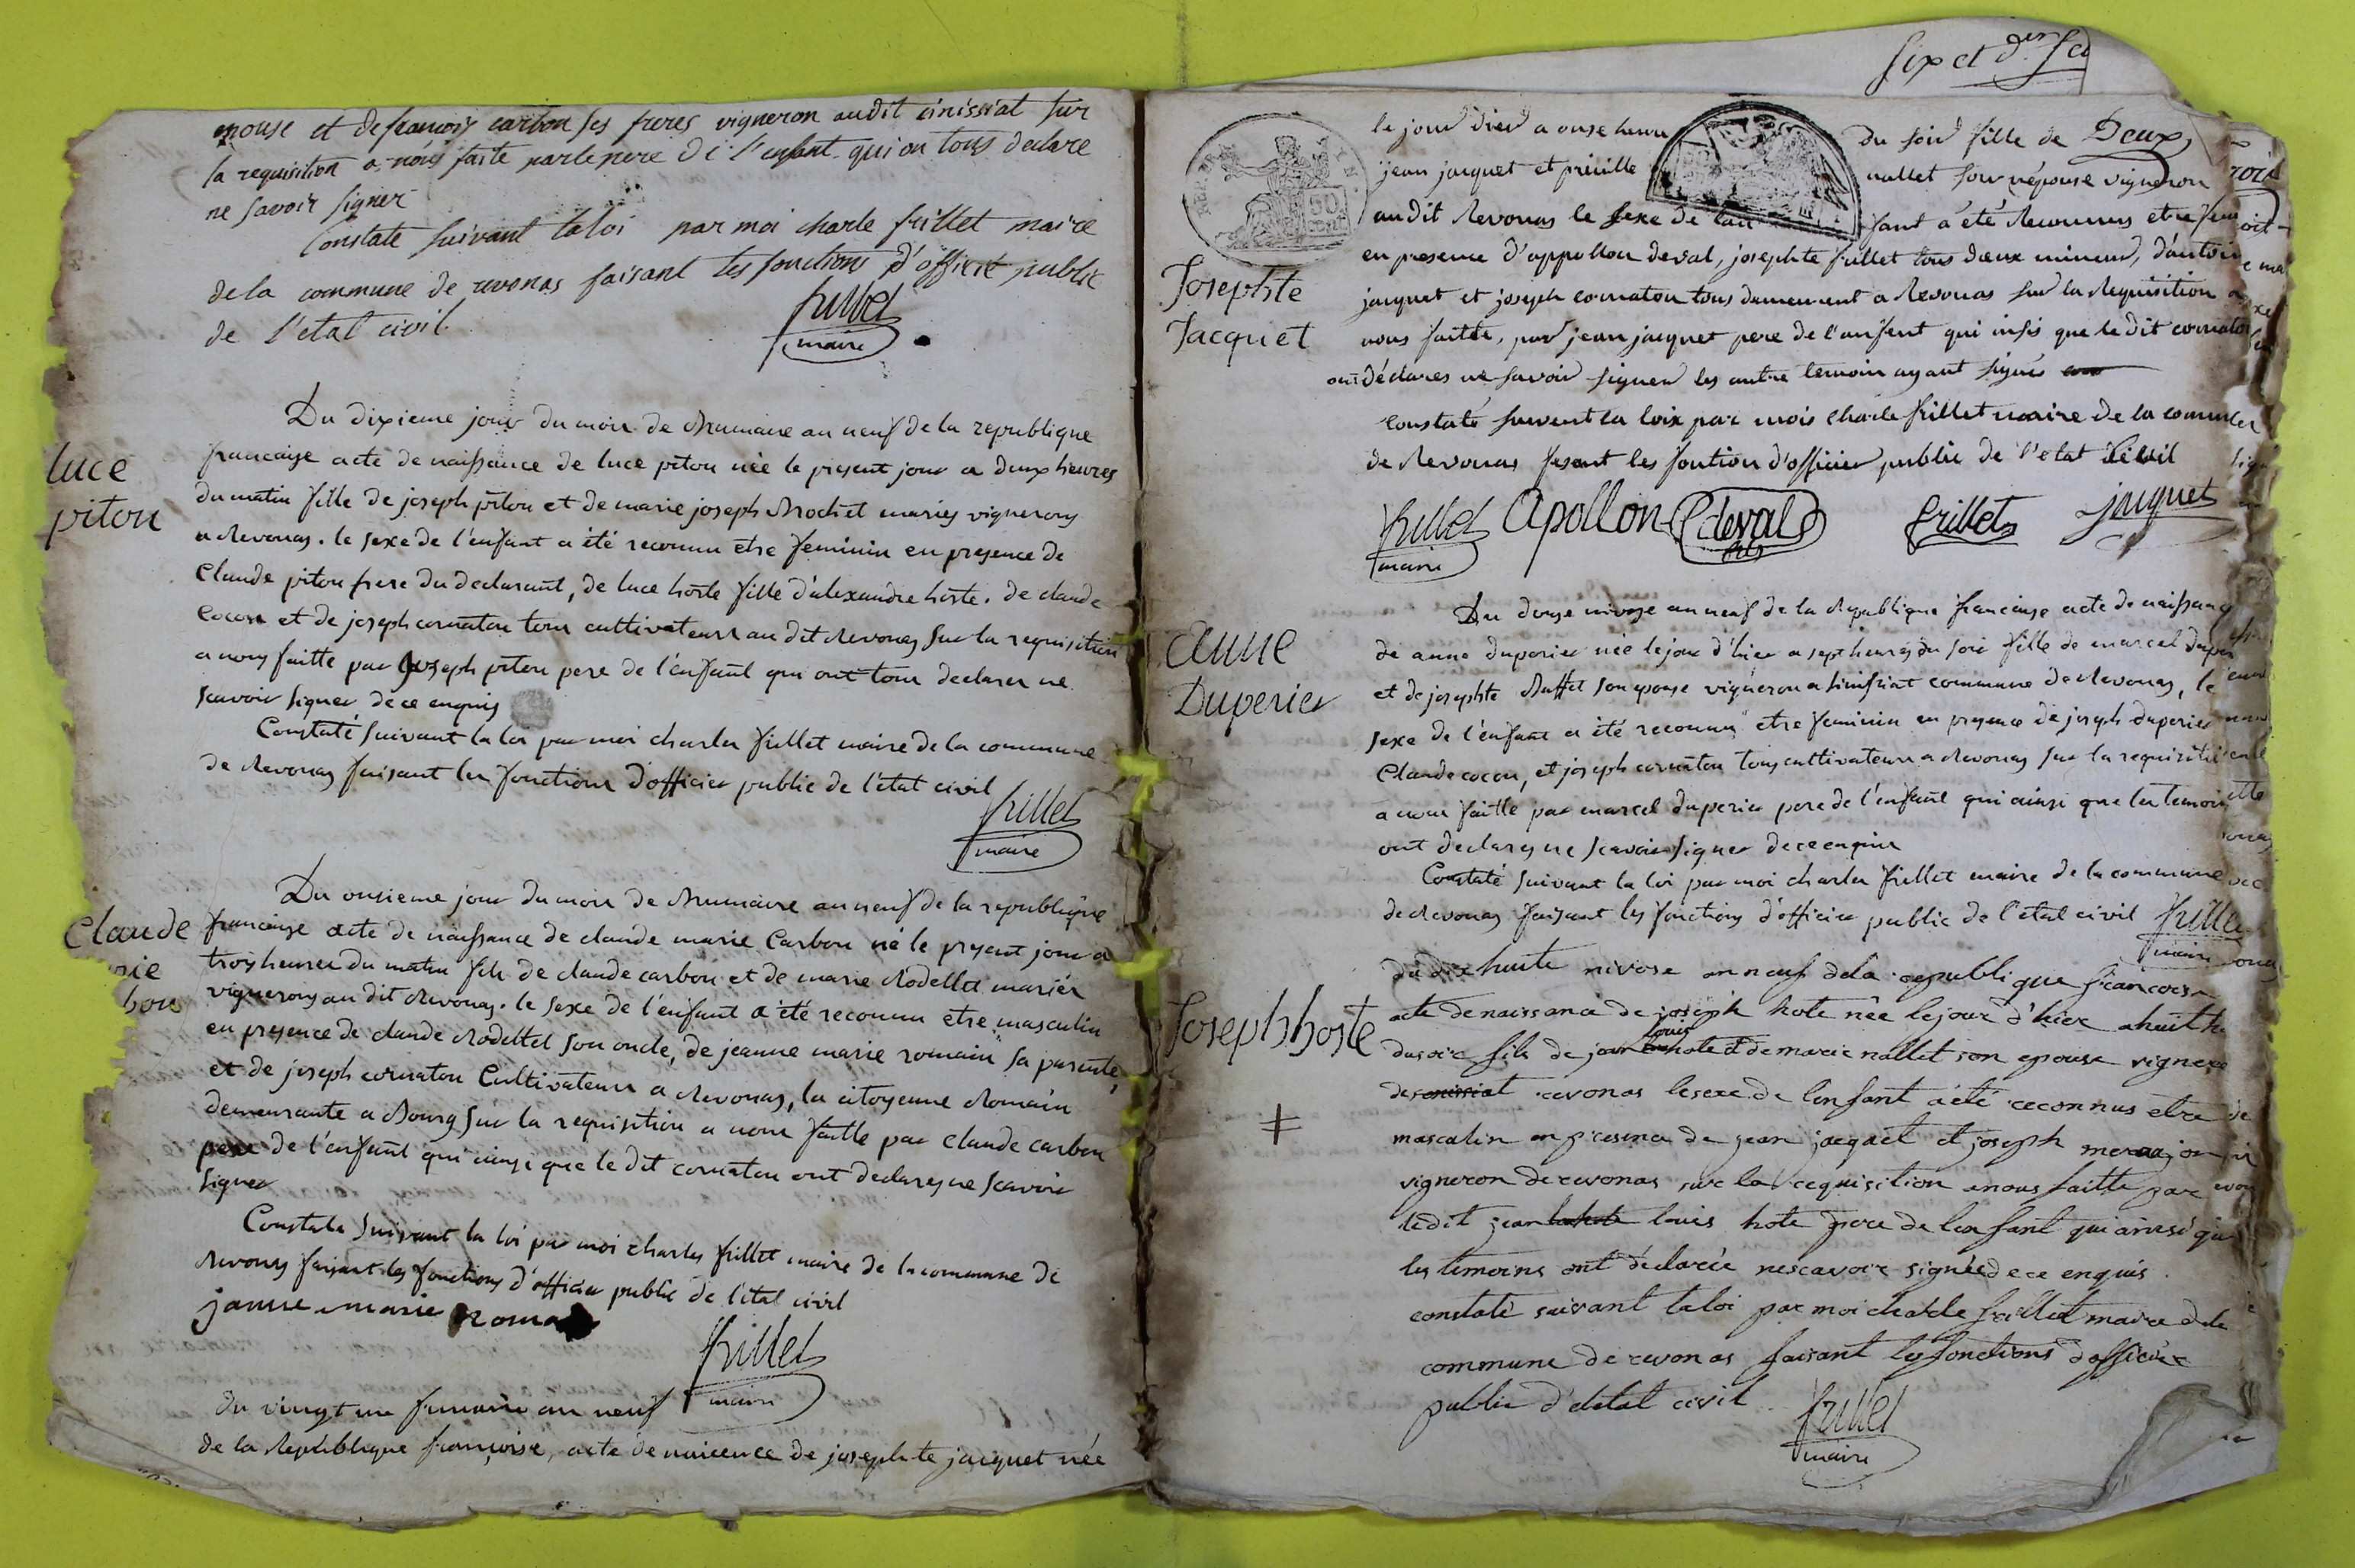 epouse et de francois carbon ses freres vigneron audit cinissiat sur
la requisition a nous faite par le pere de l'enfant qui on tous declare
ne savoir signer
Constate suivant la loi par moi charle frillet maire
de la commune de revonas faisant les fonctions d'officié public
de l'etat civil
frillet
maire
luce
piton
Du dixieme jour du mois de Brumaire an neuf de la republique
francaise acte de naissance de luce piton née le present jour a deux heures
du matin fille de joseph piton et de marie joseph Brochet mariés vignerons
a Revonas. le sexe de l'enfant a été reconnu etre feminin en presence de
Claude piton frere du declarant, de luce hoste fille d'alexandre hoste. de claude
Cocon et de joseph cornaton tous cultivateurs au dit Revonas sur la requisition
a nous faitte par joseph piton pere de l'enfant qui ont tous declarer ne
scavoir signer de ce enquis
Constaté suivant la loi par moi charles frillet maire de la commune
de Revonas faisant les fonctions d'officier public de l'état civil
frillet
maire
Claude
rie
bon
Du onsieme jour du mois de Brumaire an neuf de la republique
francaise acte de naissance de claude marie Carbon né le present jour a
troys heures du matin fils de claude carbon et de marie Rodellet mariés
vignerons au dit Revonas. le sexe de l'enfant a été reconnu etre masculin
en presence de claude Rodettet son oncle, de jeanne marie romain sa parente,
et de joseph cornaton Cultivateurs a Revonas, la citoyenne Romain
demeurante a Bourg sur la requisition a nous faitte par claude carbon
pere de l'enfant qui ainsi que le dit cornaton ont declares ne scavoir
signer
Constate suivant la loi par moi charles frillet maire de la commune de
Revonas faisant les fonctions d'officier public de l'état civil
janne marie Roma
frillet
maire
du vingt un frimaire an neuf
de la République françoise, acte de naicence de josephte jacquet née
six et
le jour d'ier a onse heures du soir fille de Deux
jean jacquet et nallet son népouse vigneron
audit Revonas le sexe de lan fant a été Reconnus etre fem
en presence d'appollon deval, josephte frillet tous deux mineur, d'antoine
Josephte
Jacquet
jacquet et joseph cornaton tous demeurent a Revonas sur la Requisition a
nous faitte, par jean jacquet pere de l'anfent qui insis que le dit cornaton
ont déclares ne savoir signer les autre temoin ayant signés
constaté suivent la loix par mois charle frillet maire de la commune
de Revonas fesant les fontion d'officier public de l'etat Civil
frillet
maire
Apollon deval
frillet
jaquet
Anne
Duperier
Du douse nivose an neuf de la Republique francaise acte de naissance
de anne duperier née le jour d'hier a sept heures du soir fille de marcel duper
et de josephte Buffet son epouse vigneron a sinissiat commune de Revonas, le
sexe de l'enfant a été reconnu etre feminin en presence de joseph duperier
Claude cocon, et joseph cornaton tous cultivateurs a Revonas sur la requisiti
a nous faitte par marcel duperier pere de l'enfant qui ainsi que les temoin
ont declares ne scavoir signer de ce enquis
Constaté suivant la loi par moi charles frillet maire de la commune
de Revonas faisant les fonctions d'officier public de l'état civil
frillet
maire
Joseph hoste
du dix huite nivose an neuf de la republique francoise
acte de naissance de joseph hote née le jour d'hier a huit he
du soir fils de jean louis hote et de marie nallet son epouse vignero
de revonas le sexe de lenfant a été reconnus etre
masculin en presence de jean jacquet et joseph
vigneron de revonas sur la requisition a nous faitte par
ledit jean louis hote pere de lenfant qui ainsi que
les temoins ont déclarée ne scavoir signée de ce enquis
constaté suivant la loi par moi charle frillet maire de la
commune de revonas faisant les fonctions d'officier
public d'etat civil
frillet
maire